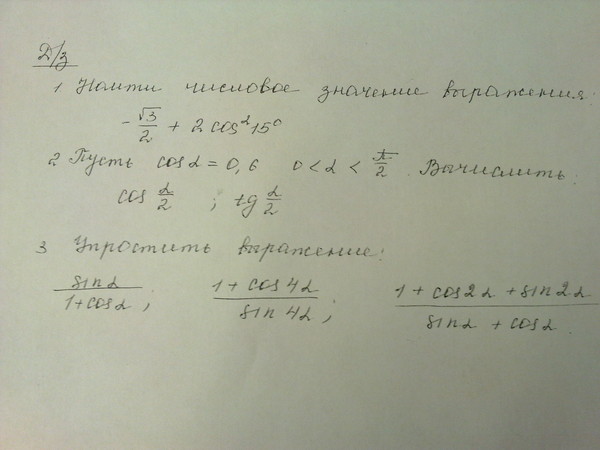 Д/з
1 Найти числовое значение выражения:
-√3/2 + 2cos²15°
2 Пусть cosα = 0,6 0 < α < π/2. Вычислить:
cos α/2 ; tg α/2
3 Упростить выражение:
sinα/(1+cosα) ; (1 + cos4α)/(sin 4α) ; (1 + cos2α + sin2α)/(sinα + cosα).